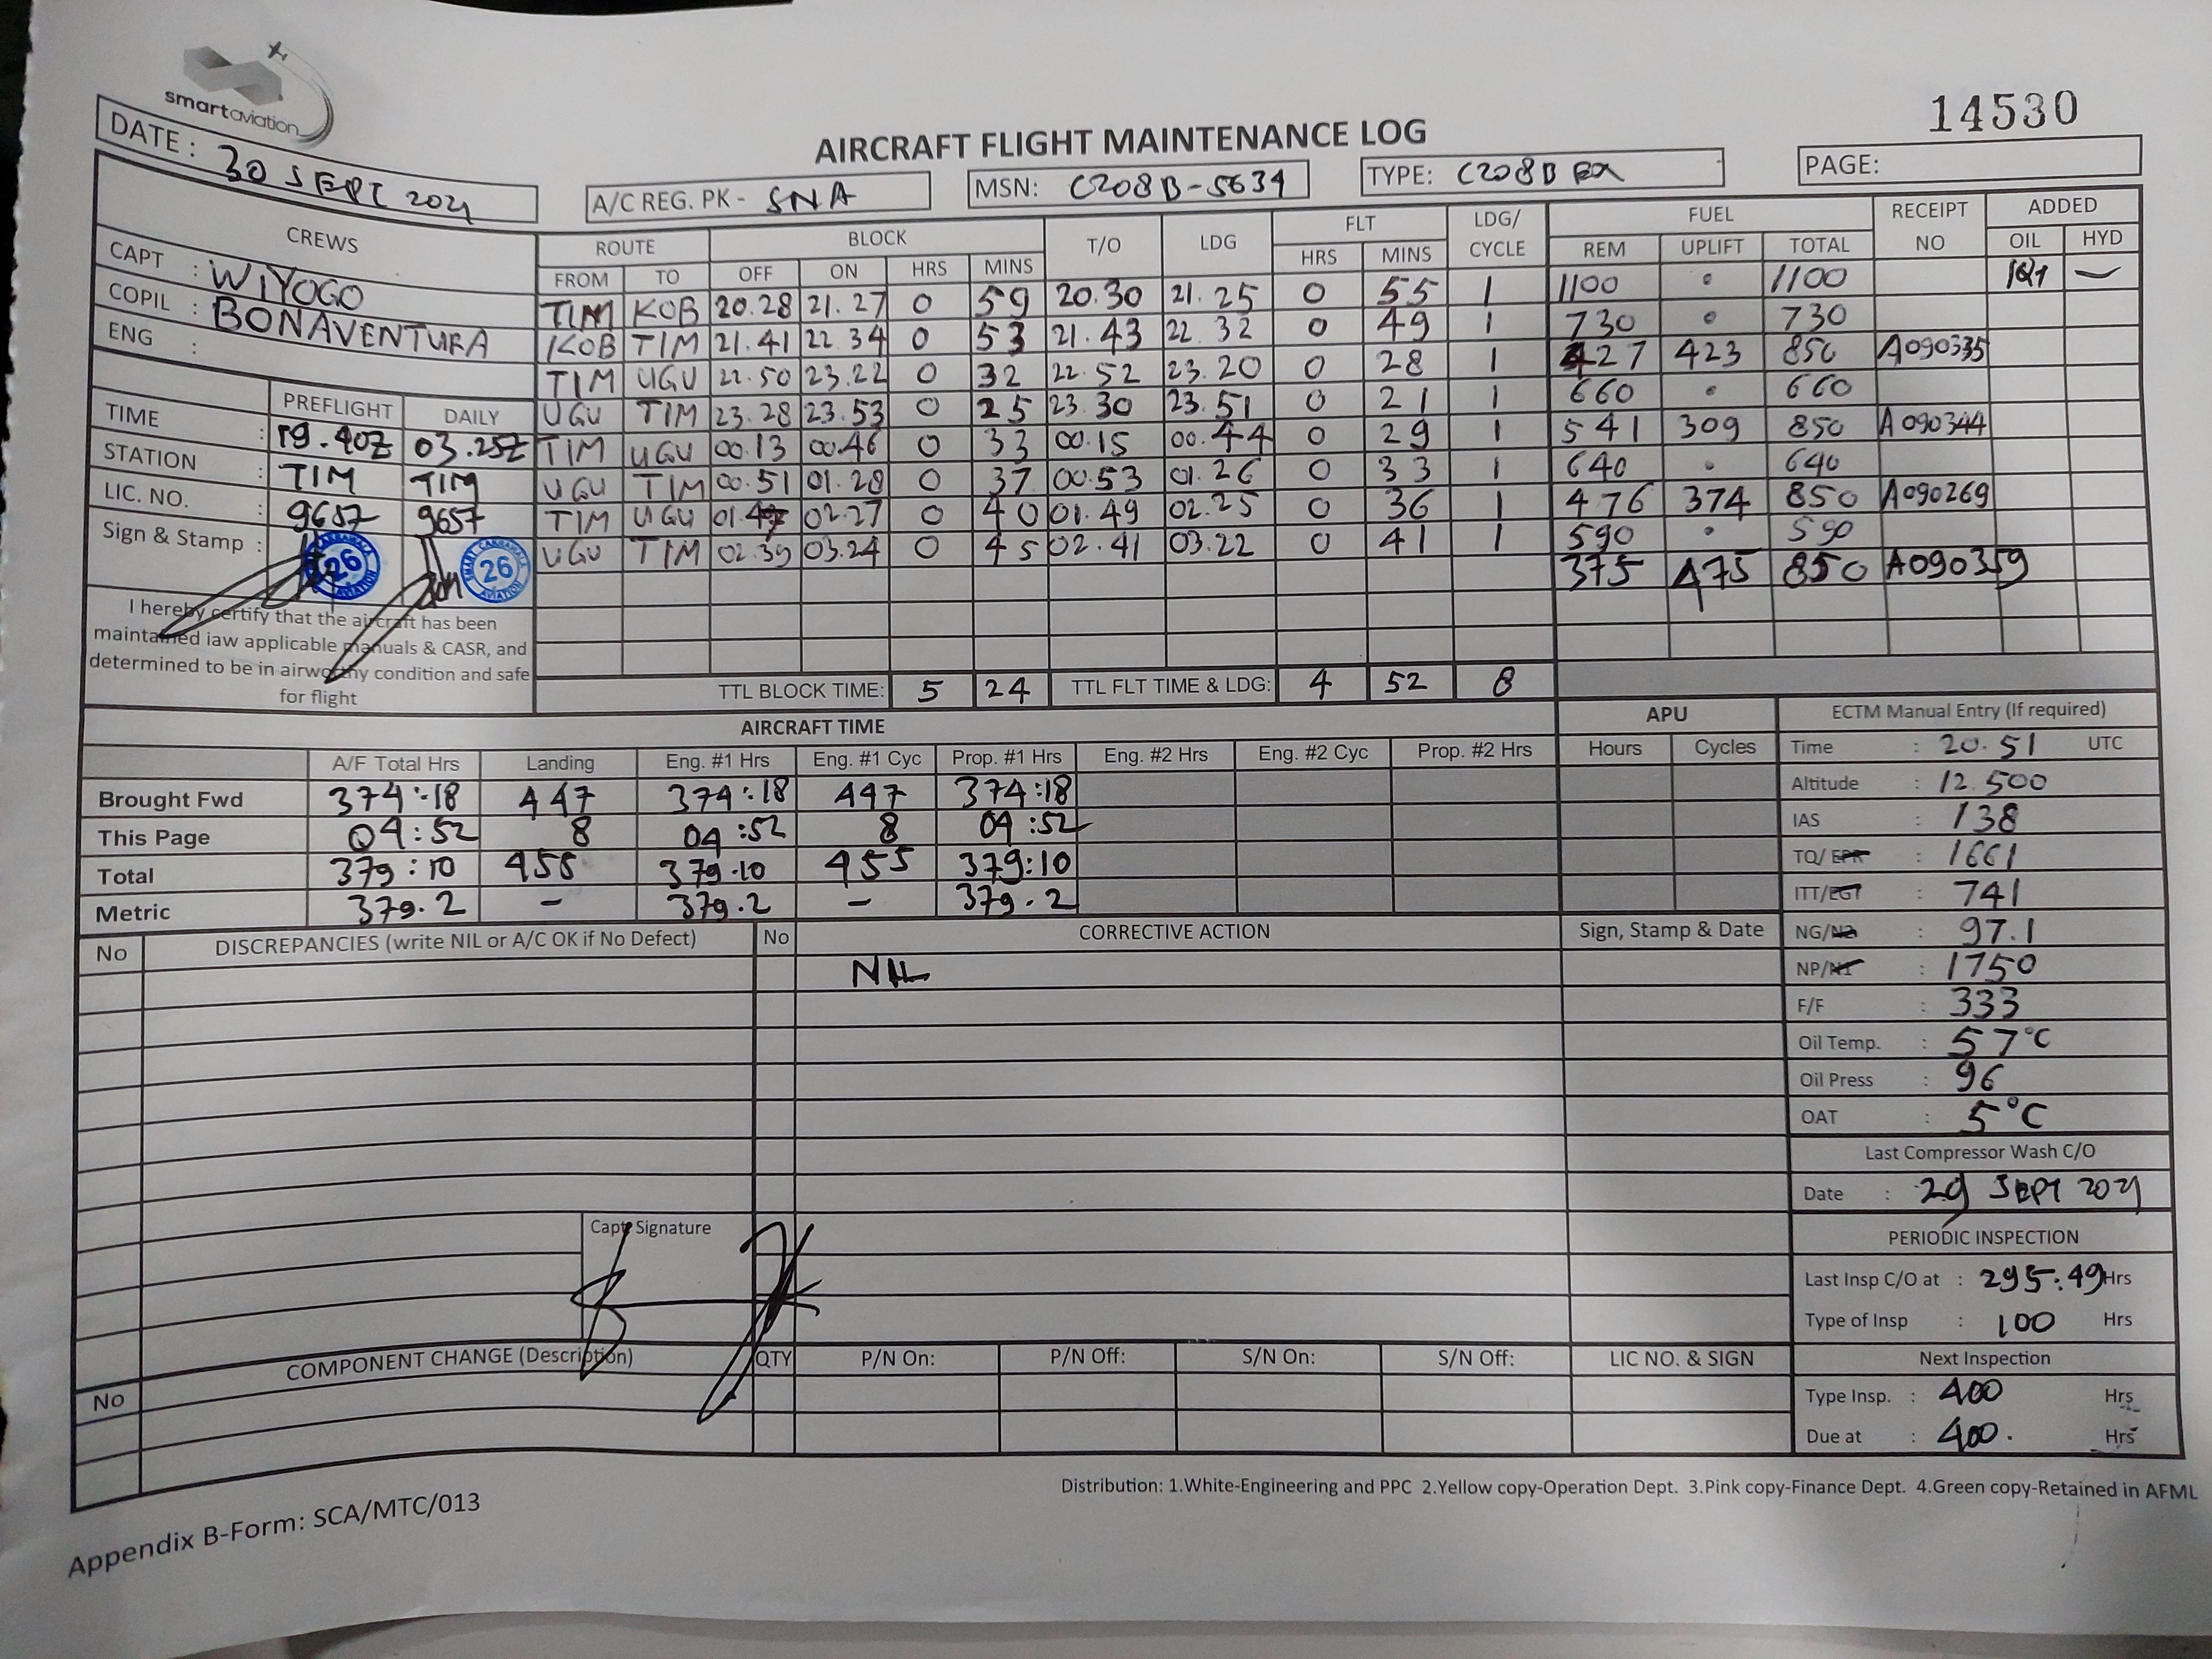 smartaviation
14530
AIRCRAFT FLIGHT MAINTENANCE LOG
DATE : 30 SEPT 2021
A/C REG. PK - SNA
MSN: C208B-5634
TYPE: C208B EX
PAGE:
CREWS
CAPT : WIYOGO
COPIL : BONAVENTURA
ENG :
PREFLIGHT DAILY
TIME : 19.40Z 03.25Z
STATION : TIM TIM
LIC. NO. : 9657 9657
Sign & Stamp :
SMART CAKRAWALA AVIATION 26
SMART CAKRAWALA AVIATION 26
I hereby certify that the aircraft has been
maintained iaw applicable manuals & CASR, and
determined to be in airworthy condition and safe
for flight
ROUTE BLOCK T/O LDG FLT LDG/ CYCLE FUEL RECEIPT NO ADDED
FROM TO OFF ON HRS MINS HRS MINS REM UPLIFT TOTAL OIL HYD
TIM KOB 20.28 21.27 0 59 20.30 21.25 0 55 1 1100 0 1100 1Qt —
KOB TIM 21.41 22.34 0 53 21.43 22.32 0 49 1 730 0 730
TIM UGU 22.50 23.22 0 32 22.52 23.20 0 28 1 427 423 850 A090335
UGU TIM 23.28 23.53 0 25 23.30 23.51 0 21 1 660 0 660
TIM UGU 00.13 00.46 0 33 00.15 00.44 0 29 1 541 309 850 A090344
UGU TIM 00.51 01.28 0 37 00.53 01.26 0 33 1 640 0 640
TIM UGU 01.47 02.27 0 40 01.49 02.25 0 36 1 476 374 850 A090269
UGU TIM 02.39 03.24 0 45 02.41 03.22 0 41 1 590 0 590
375 475 850 A090359
TTL BLOCK TIME: 5 24 TTL FLT TIME & LDG: 4 52 8
AIRCRAFT TIME
A/F Total Hrs Landing Eng. #1 Hrs Eng. #1 Cyc Prop. #1 Hrs Eng. #2 Hrs Eng. #2 Cyc Prop. #2 Hrs
Brought Fwd 374:18 447 374:18 447 374:18
This Page 04:52 8 04:52 8 04:52
Total 379:10 455 379.10 455 379:10
Metric 379.2 - 379.2 - 379.2
APU
Hours Cycles
ECTM Manual Entry (If required)
Time : 20.51 UTC
Altitude : 12.500
IAS : 138
TQ/ EPR : 1661
ITT/EGT : 741
NG/N2 : 97.1
NP/N1 : 1750
F/F : 333
Oil Temp. : 57°C
Oil Press : 96
OAT : 5°C
Last Compressor Wash C/O
Date : 29 SEPT 2021
PERIODIC INSPECTION
Last Insp C/O at : 295:49 Hrs
Type of Insp : 100 Hrs
Next Inspection
Type Insp. : 400 Hrs
Due at : 400. Hrs
No DISCREPANCIES (write NIL or A/C OK if No Defect) No CORRECTIVE ACTION Sign, Stamp & Date
NIL
Capt Signature
COMPONENT CHANGE (Description) QTY P/N On: P/N Off: S/N On: S/N Off: LIC NO. & SIGN
No
Distribution: 1.White-Engineering and PPC 2.Yellow copy-Operation Dept. 3.Pink copy-Finance Dept. 4.Green copy-Retained in AFML
Appendix B-Form: SCA/MTC/013